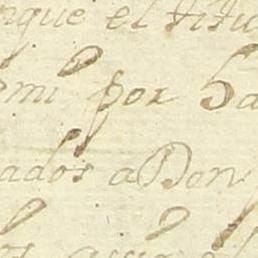 nque el titu
mi por Sa
ados a Don